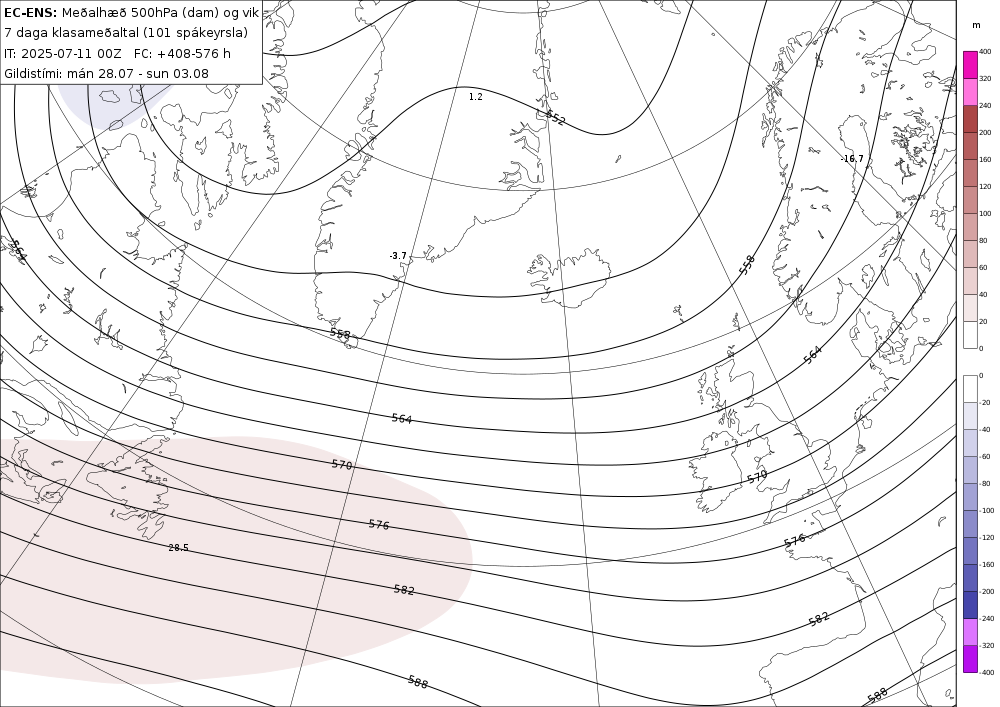 EC-ENS: Meðalhæð 500hPa (dam) og vik
7 daga klasameðaltal (101 spákeyrsla)
IT: 2025-07-11 00Z FC: +408-576 h
Gildistími: mán 28.07 - sun 03.08
m
400
320
240
200
160
120
100
80
60
40
20
0
0
-20
-40
-60
-80
-100
-120
-160
-200
-240
-320
-400
1.2
552
-16.7
-3.7
564
558
558
564
564
570
570
576
576
28.5
582
582
588
588